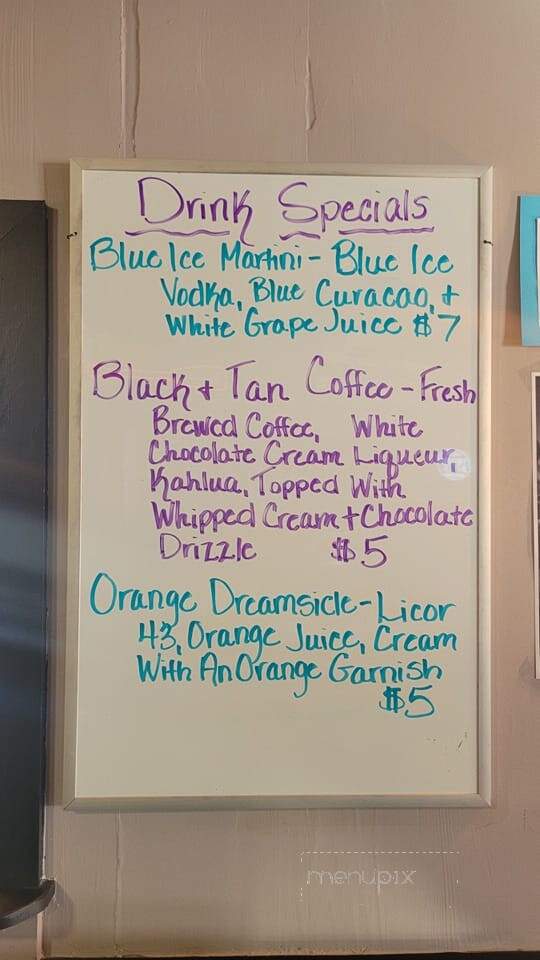 Drink Specials
Blue Ice Martini - Blue Ice
Vodka, Blue Curacao, +
White Grape Juice $7
Black + Tan Coffee - Fresh
Brewed Coffee, White
Chocolate Cream Liqueur
Kahlua, Topped With
Whipped Cream + Chocolate
Drizzle $5
Orange Dreamsicle - Licor
43, Orange Juice, Cream
With An Orange Garnish
$5
menupix